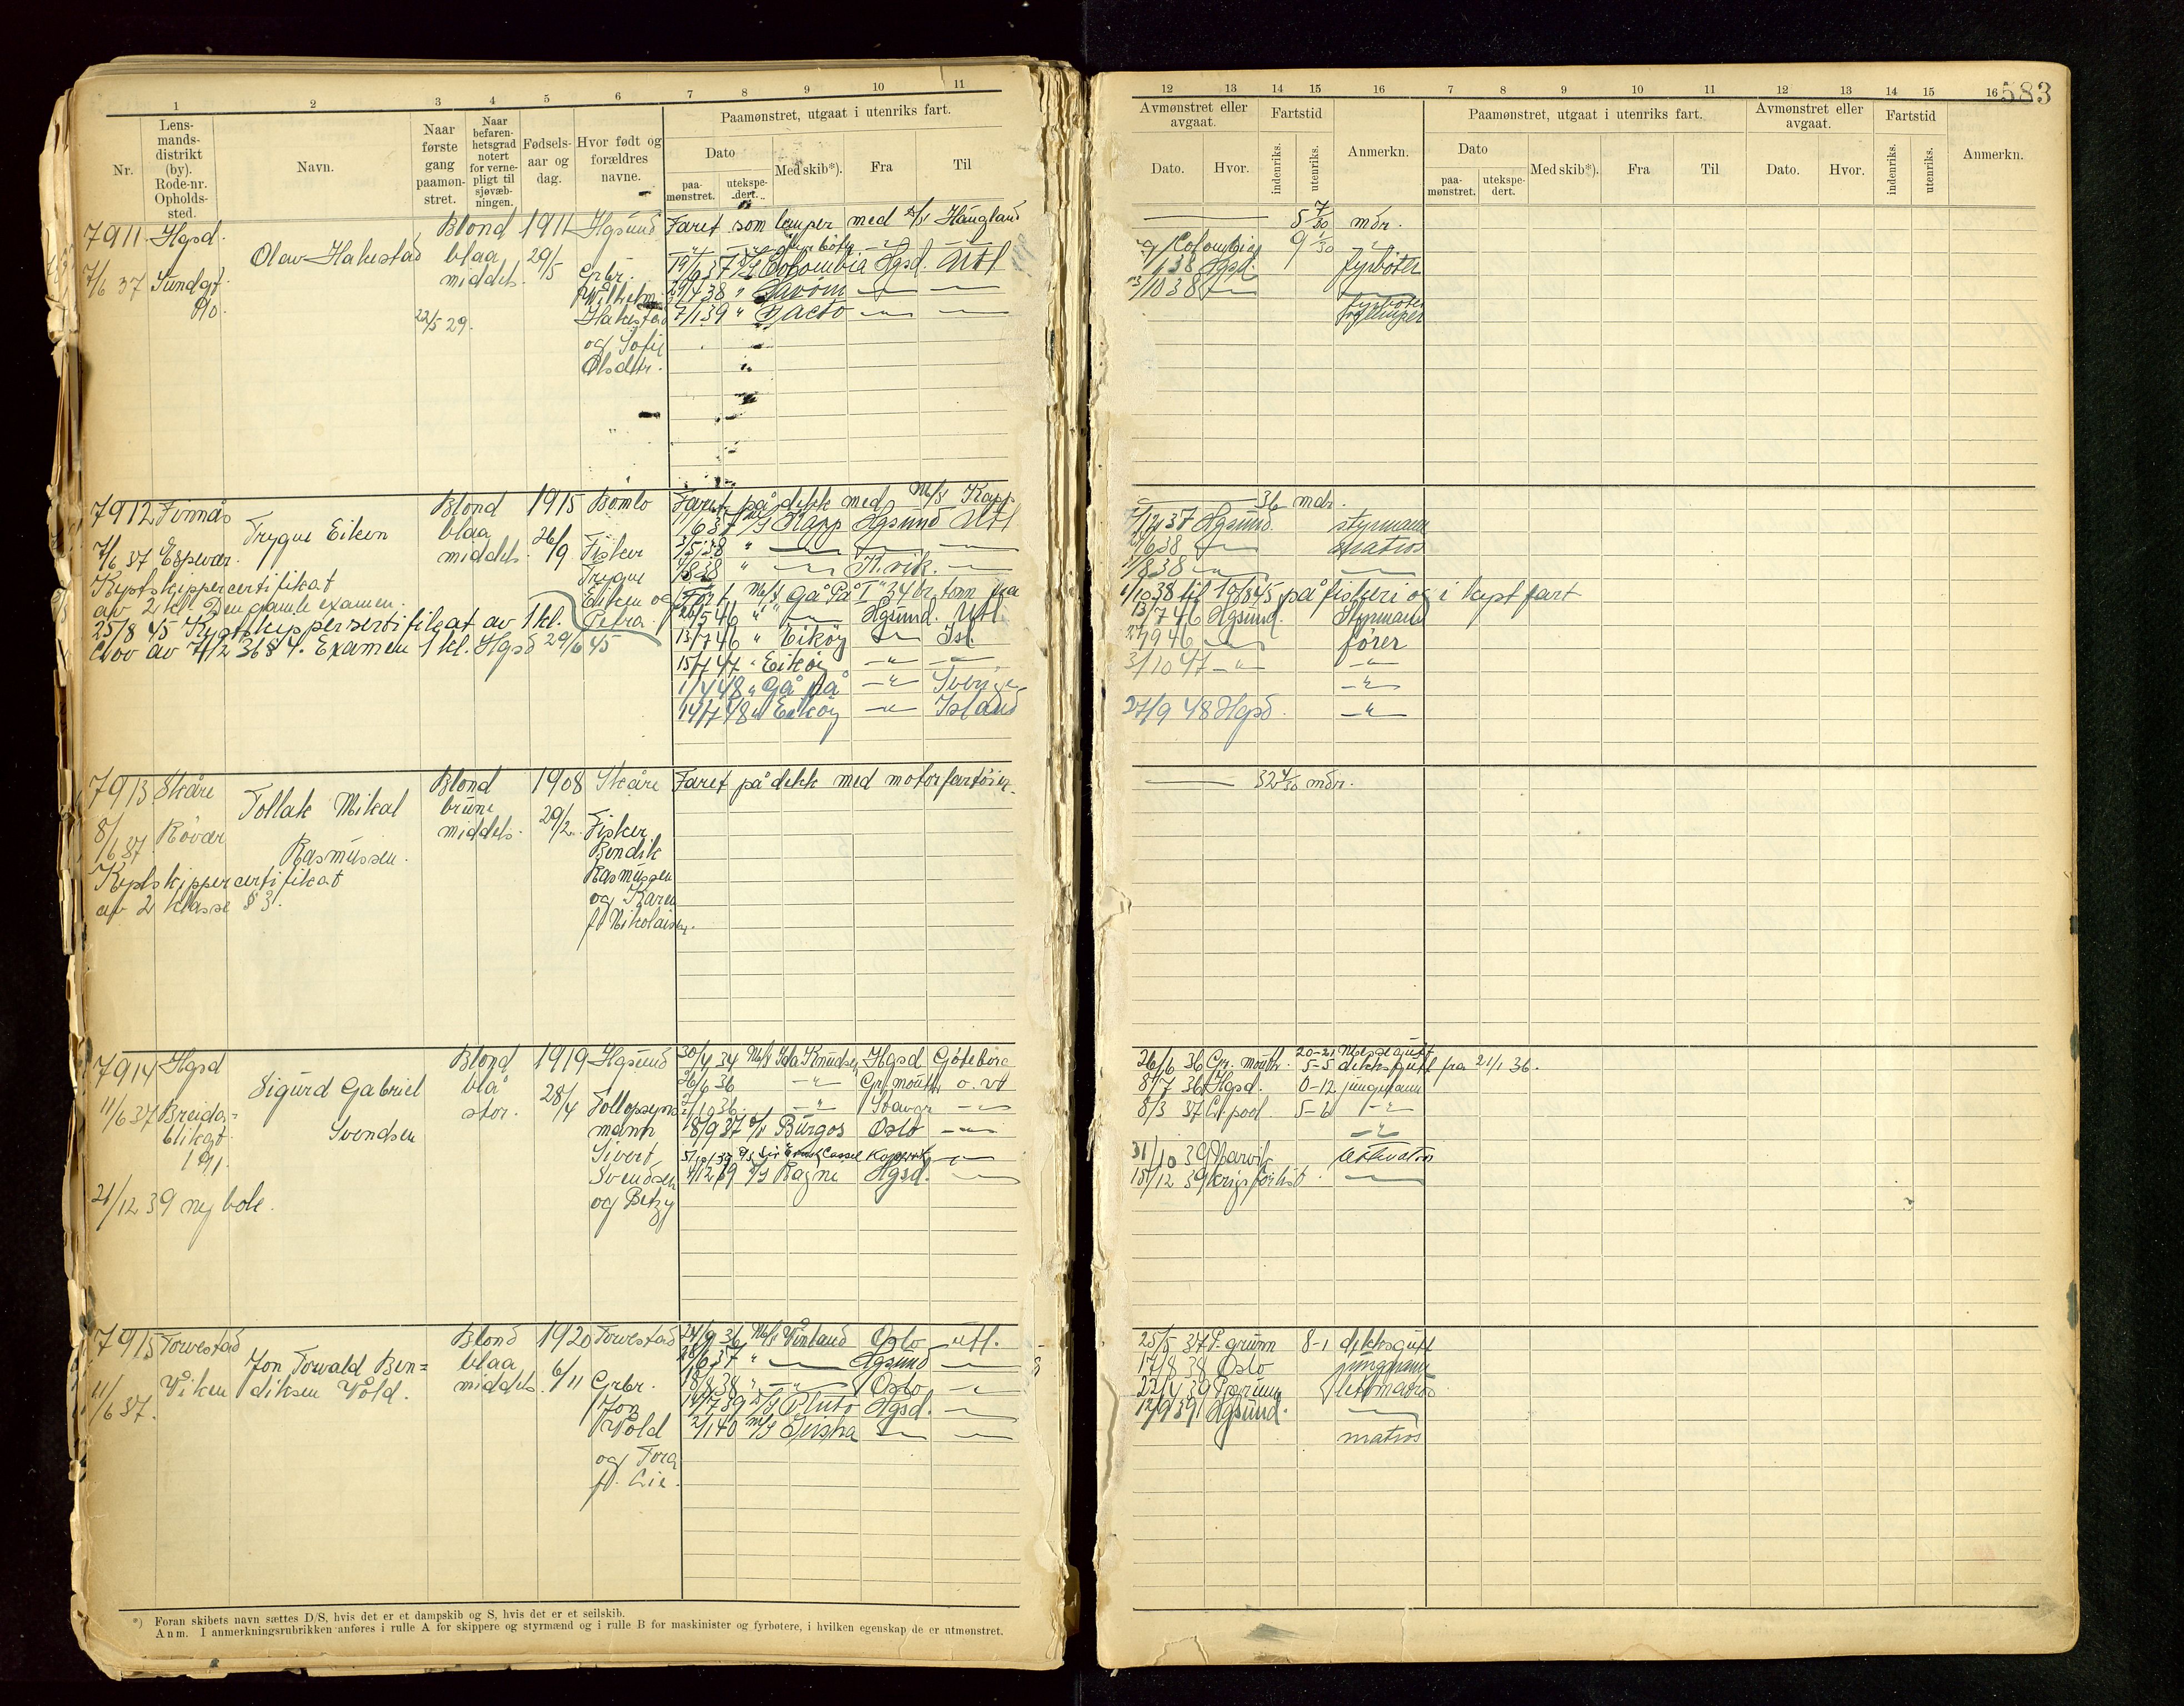 1 2 3 4 5 6 7 8 9 10 11
Nr.
Lens-
mands-
distrikt
(by).
Rode-nr.
Opholds-
sted.
Navn.
Naar
første
gang
paamøn-
stret.
Naar
befaren-
hetsgrad
notert
for verne-
pligt til
sjøvæb-
ningen.
Fødsels-
aar og
dag.
Hvor født og
forældres
navne.
Paamønstret, utgaat i utenriks fart.
Dato
paa-
mønstret.
utekspe-
dert.
Med skib*).
Fra
Til
7911 Hgsd.
7/6 37 Sundgt.
Olav Hakestad
22/5 29.
Blond
blaa
middels.
1911
29/5
Hgsund
Grbr.
Wilhelm
Hakestad
og Sofie
Olsdtr.
Faret som lemper med D/S Haugland
19/6 37 D/S Colombia Hgsd. Utl
29/4 38 "
7/1 39 "
7912 Finnås
7/6 37 Espevær.
Trygve Eiken
Kystskippercertifikat
av 2 kl. Den gamle examen.
25/8 45 Kystskippersertifikat av 1 kl.
Lov av 7/12 36 § 4. Examen 1 kl. Hgsd 29/6 45
Blond
blaa
middels.
1915
26/9
Bømlo
Fisker
Trygve
Eiken og
Petra.
Faret på dekk med M/S Kapp
Kapp Hgsund Utl
3/5 38 "
"Gå På I" 34 br. tonn fra
26/5 46 " Hgsund. Utl.
13/7 46 " Eikøy Isl.
15/7 47 " Eikøy
1/4 48 " Gå på Sverige
14/7 48 " Eikøy Island
7913 Skåre
8/6 37 Røvær
Tollak Mikal
Rasmussen.
Kystskippercertifikat
av 2 klasse § 3.
Blond
brune
middels.
1908
29/2
Skåre
Fisker
Bendik
Rasmussen
og Karen
f. Nikolaisen.
Faret på dekk med motorfartøier.
7914 Hgsd
11/6 37 Breida=
blikgt.
191.
Sigurd Gabriel
Svendsen
21/12 39 ny bok.
Blond
blå
stor.
1919
28/4
Hgsund
Tollopsyns
mann
Sivert
Svendsen
og Betzy
30/4 34 M/S Ida Knudsen Hgsd Göteborg
26/6 36 Grt. mouth o. vt
18/9 37 D/S Burgos Oslo
5/10 37 D/S Sir Ernest Cassel
D/S Ragni Hgsd.
7915 Torvestad
11/6 37. Viken
Jon Torvald Ben=
diksen Vold.
Blond
blaa
middels.
1920
6/11
Torvestad
Grbr.
Jon
Vold
og Tora
f. Lie.
24/9 36 M/S Vinland Oslo utl.
Hgsund
18/8 38 " Oslo
14/7 39 D/S Pluto Hgsd.
2/1 40 M/S Geisha
*) Foran skibets navn sættes D/S, hvis det er et dampskib og S, hvis det er et seilskib.
Anm. I anmerkningsrubrikken anføres i rulle A for skippere og styrmænd og i rulle B for maskinister og fyrbøtere, i hvilken egenskap de er utmønstret.
583
12 13 14 15 16 7 8 9 10 11 12 13 14 15 16
Avmønstret eller
avgaat.
Dato.
Hvor.
Fartstid
indenriks.
utenriks.
Anmerkn.
Paamønstret, utgaat i utenriks fart.
Dato
paa-
mønstret.
utekspe-
dert.
Med skib*).
Fra
Til
Avmønstret eller
avgaat.
Dato.
Hvor.
Fartstid
indenriks.
utenriks.
Anmerkn.
5 7/30 mdr.
Colombia 9 1/30
Hgsd. fyrbøter
36 mdr.
Hgsund. styrmann
matros
1/10 38 til 19/8 45 på fiskeri og i kyst fart
13/7 46 Hgsund. Styrmann
27/9 46 fører
3/10 47
27/9 48 Hgsd.
32 4/30 mdr.
26/6 36 Gr. mouth. 20-21 Messegutt
5-5 dekksgutt fra 21/1 36.
8/7 36 Hgsd. 0-12 jungmann
8/3 37 L. pool. 5-6
31/10 39 Narvik
18/12 39 krigsforlist.
25/5 37 P. grunn 8-1 dekksgutt
17/8 38 Oslo jungmann
22/4 39 P. grunn lettmatros
12/9 39 Hgsund.
matros